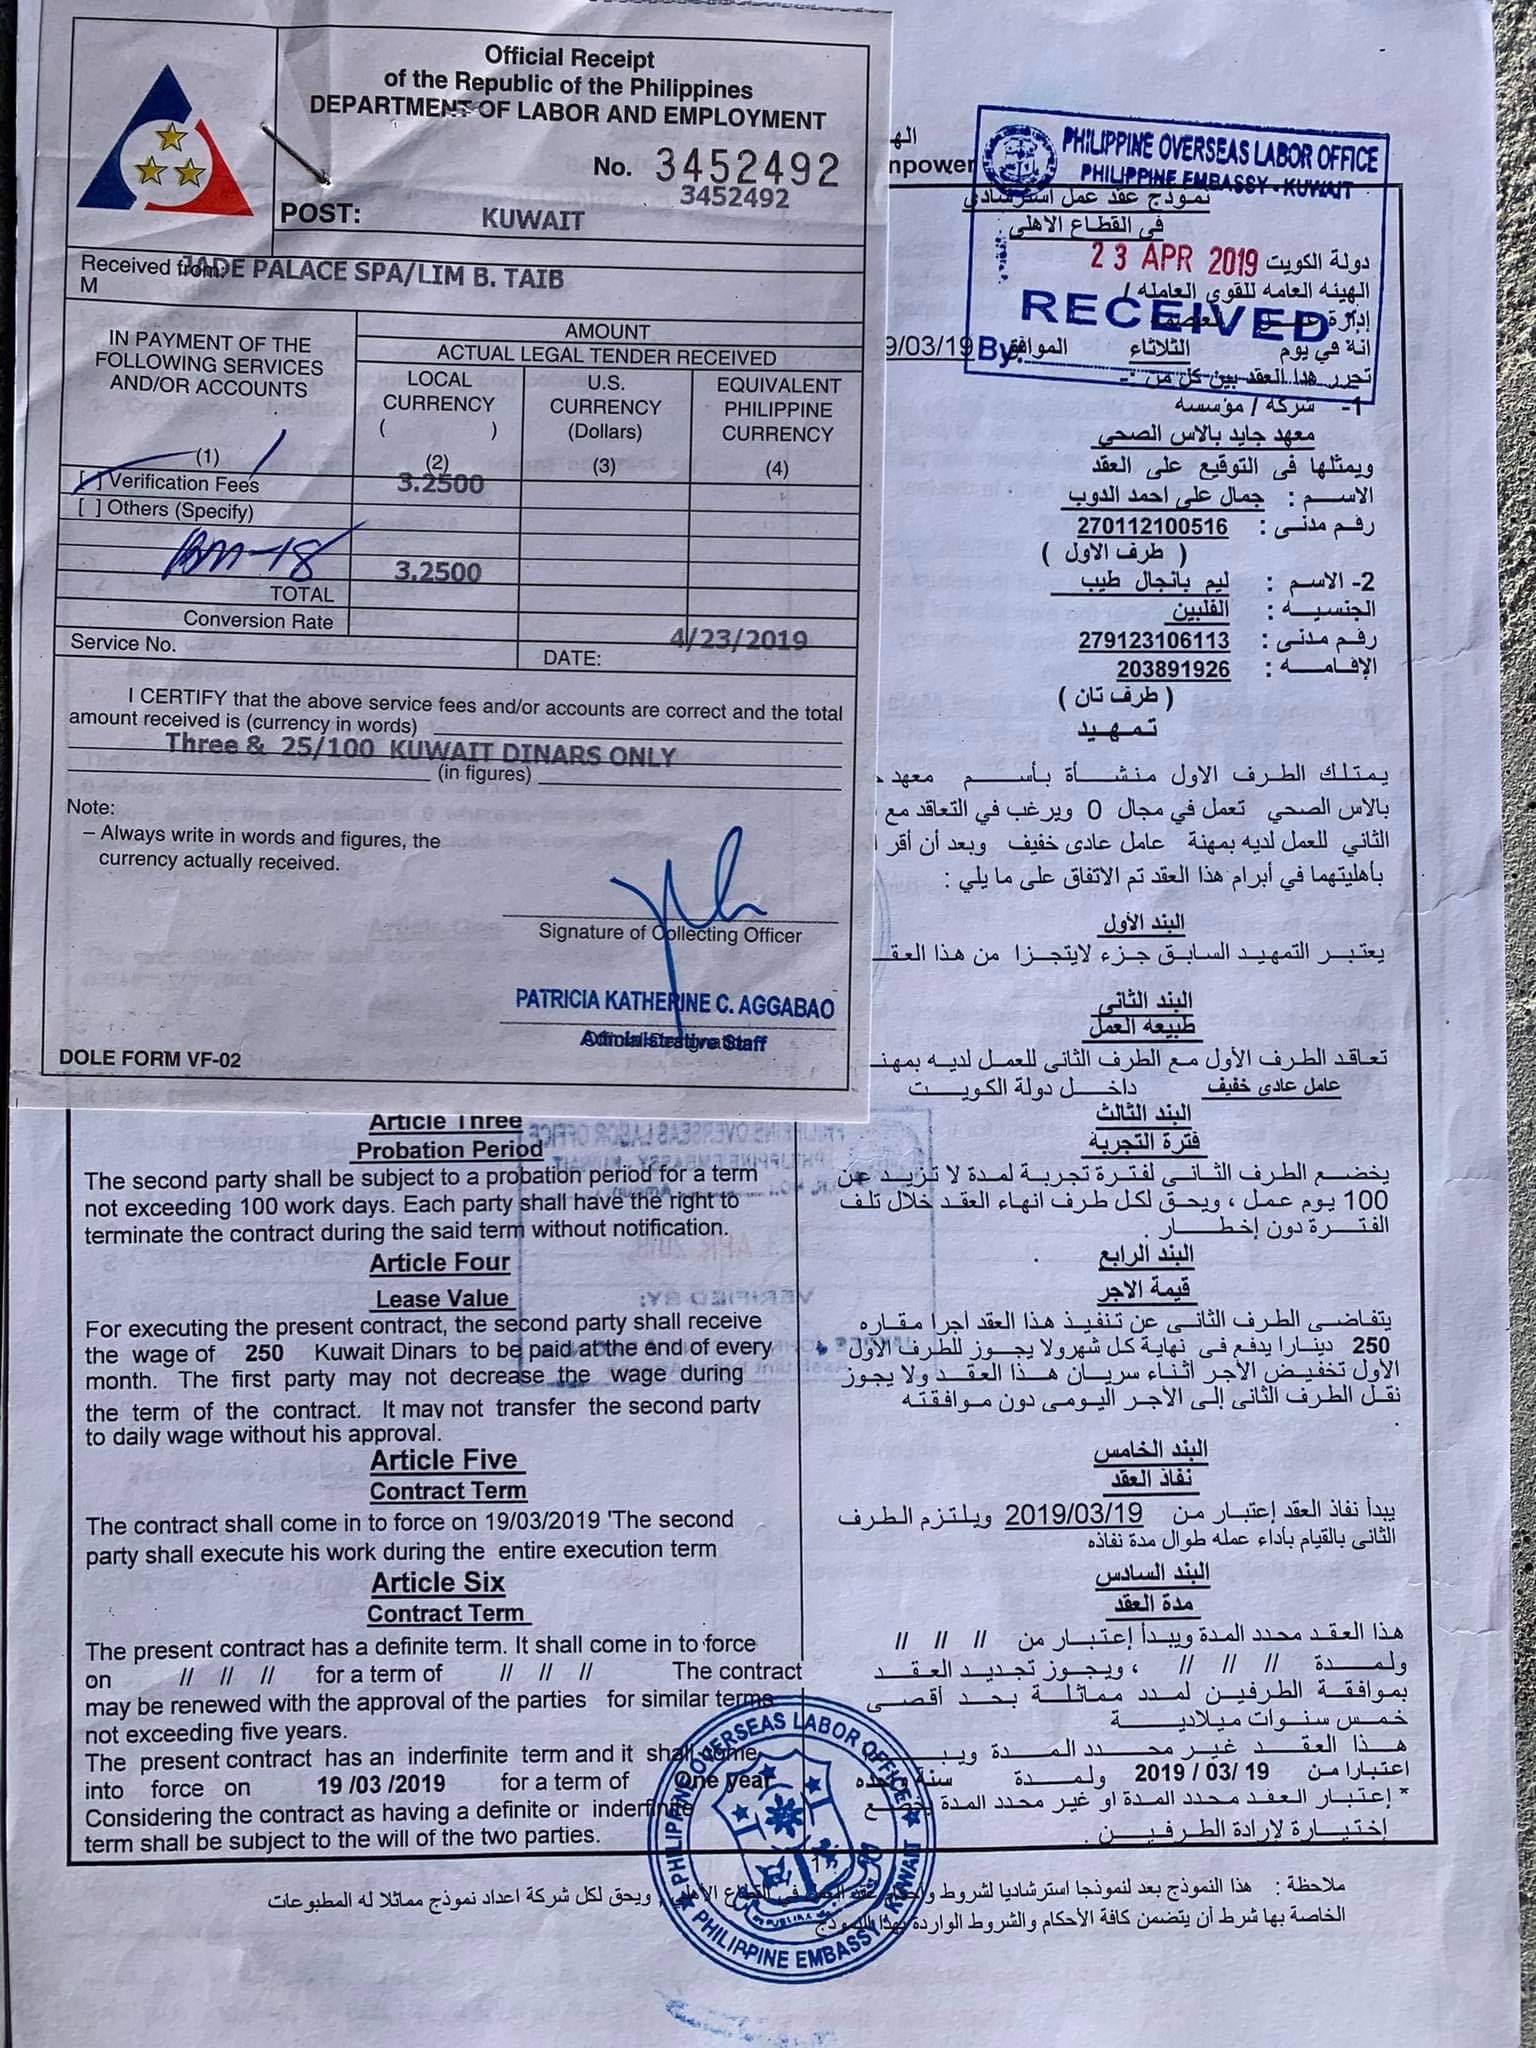 Official Receipt
of the Republic of the Philippines
DEPARTMENT OF LABOR AND EMPLOYMENT
No. 3452492
3452492
POST: KUWAIT
Received from: JADE PALACE SPA/LIM B. TAIB
M
IN PAYMENT OF THE
FOLLOWING SERVICES
AND/OR ACCOUNTS
(1)
AMOUNT
ACTUAL LEGAL TENDER RECEIVED
LOCAL
CURRENCY
( )
(2)
U.S.
CURRENCY
(Dollars)
(3)
EQUIVALENT
PHILIPPINE
CURRENCY
(4)
[ ] Verification Fees 3.2500
[ ] Others (Specify)
3.2500
TOTAL
Conversion Rate
Service No.
DATE: 4/23/2019
I CERTIFY that the above service fees and/or accounts are correct and the total
amount received is (currency in words)
Three & 25/100 KUWAIT DINARS ONLY
(in figures)
Note:
– Always write in words and figures, the
currency actually received.
Signature of Collecting Officer
PATRICIA KATHERINE C. AGGABAO
Administrative Staff
DOLE FORM VF-02
PHILIPPINE OVERSEAS LABOR OFFICE
PHILIPPINE EMBASSY - KUWAIT
23 APR 2019
RECEIVED
By:
نموذج عقد عمل استرشادى
فى القطاع الاهلى
دولة الكويت
الهيئه العامه للقوى العامله /
انه في يوم الثلاثاء الموافق 9/03/19
تحرر هذا العقد بين كل من :-
1- شركه / مؤسسه
معهد جايد بالاس الصحي
ويمثلها فى التوقيع على العقد
الاسم : جمال على احمد الدوب
رقم مدنى : 270112100516
( طرف الاول )
2- الاسم : ليم بانجال طيب
الجنسيه : الفلبين
رقم مدنى : 279123106113
الإقامه : 203891926
( طرف ثان )
تمهيد
يمتلك الطرف الاول منشأة بأسم معهد
بالاس الصحي تعمل في مجال 0 ويرغب في التعاقد مع
الثاني للعمل لديه بمهنة عامل عادى خفيف وبعد أن أقر
بأهليتهما في أبرام هذا العقد تم الاتفاق على ما يلي :
البند الأول
يعتبر التمهيد السابق جزء لايتجزا من هذا العقد
البند الثانى
طبيعه العمل
تعاقد الطرف الأول مع الطرف الثانى للعمل لديه بمهنة
عامل عادى خفيف داخل دولة الكويت
Article Three
Probation Period
The second party shall be subject to a probation period for a term
not exceeding 100 work days. Each party shall have the right to
terminate the contract during the said term without notification.
البند الثالث
فترة التجربة
يخضع الطرف الثانى لفترة تجربة لمدة لا تزيد عن
100 يوم عمل ، ويحق لكل طرف انهاء العقد خلال تلف
الفترة دون إخطار .
Article Four
Lease Value
For executing the present contract, the second party shall receive
the wage of 250 Kuwait Dinars to be paid at the end of every
month. The first party may not decrease the wage during
the term of the contract. It may not transfer the second party
to daily wage without his approval.
البند الرابع
قيمة الاجر
يتقاضى الطرف الثانى عن تنفيذ هذا العقد أجرا مقاره
250 دينارا يدفع فى نهاية كل شهرولا يجوز للطرف الأول
الأول تخفيض الأجر اثناء سريان هذا العقد ولا يجوز
نقل الطرف الثانى إلى الأجر اليومى دون موافقته
.
Article Five
Contract Term
The contract shall come in to force on 19/03/2019 'The second
party shall execute his work during the entire execution term
البند الخامس
نفاذ العقد
يبدأ نفاذ العقد إعتبار من 2019/03/19 ويلتزم الطرف
الثانى بالقيام بأداء عمله طوال مدة نفاذه
Article Six
Contract Term
The present contract has a definite term. It shall come in to force
on // // // for a term of // // // The contract
may be renewed with the approval of the parties for similar terms
not exceeding five years.
The present contract has an inderfinite term and it shall come
into force on 19 /03 /2019 for a term of One year
Considering the contract as having a definite or inderfinite
term shall be subject to the will of the two parties.
البند السادس
مدة العقد
هذا العقد محدد المدة ويبدأ إعتبار من // // //
ولمدة // // // ، ويجوز تجديد العقد
بموافقة الطرفين لمدد مماثلة بحد أقصى
خمس سنوات ميلادية
هذا العقد غير محدد المدة
اعتبارا من 19 /03 / 2019 ولمدة سنة واحده
* إعتبار العقد محدد المدة او غير محدد المدة يخضع
إختيارة لإرادة الطرفين .
PHILIPPINE OVERSEAS LABOR OFFICE
PHILIPPINE EMBASSY, KUWAIT
ملاحظة : هذا النموذج بعد لنموذجا استرشاديا لشروط القطاع الأهلي , ويحق لكل شركة اعداد نموذج مماثلا له المطبوعات
الخاصة بها شرط أن يتضمن كافة الأحكام والشروط الواردة بهذا النموذج